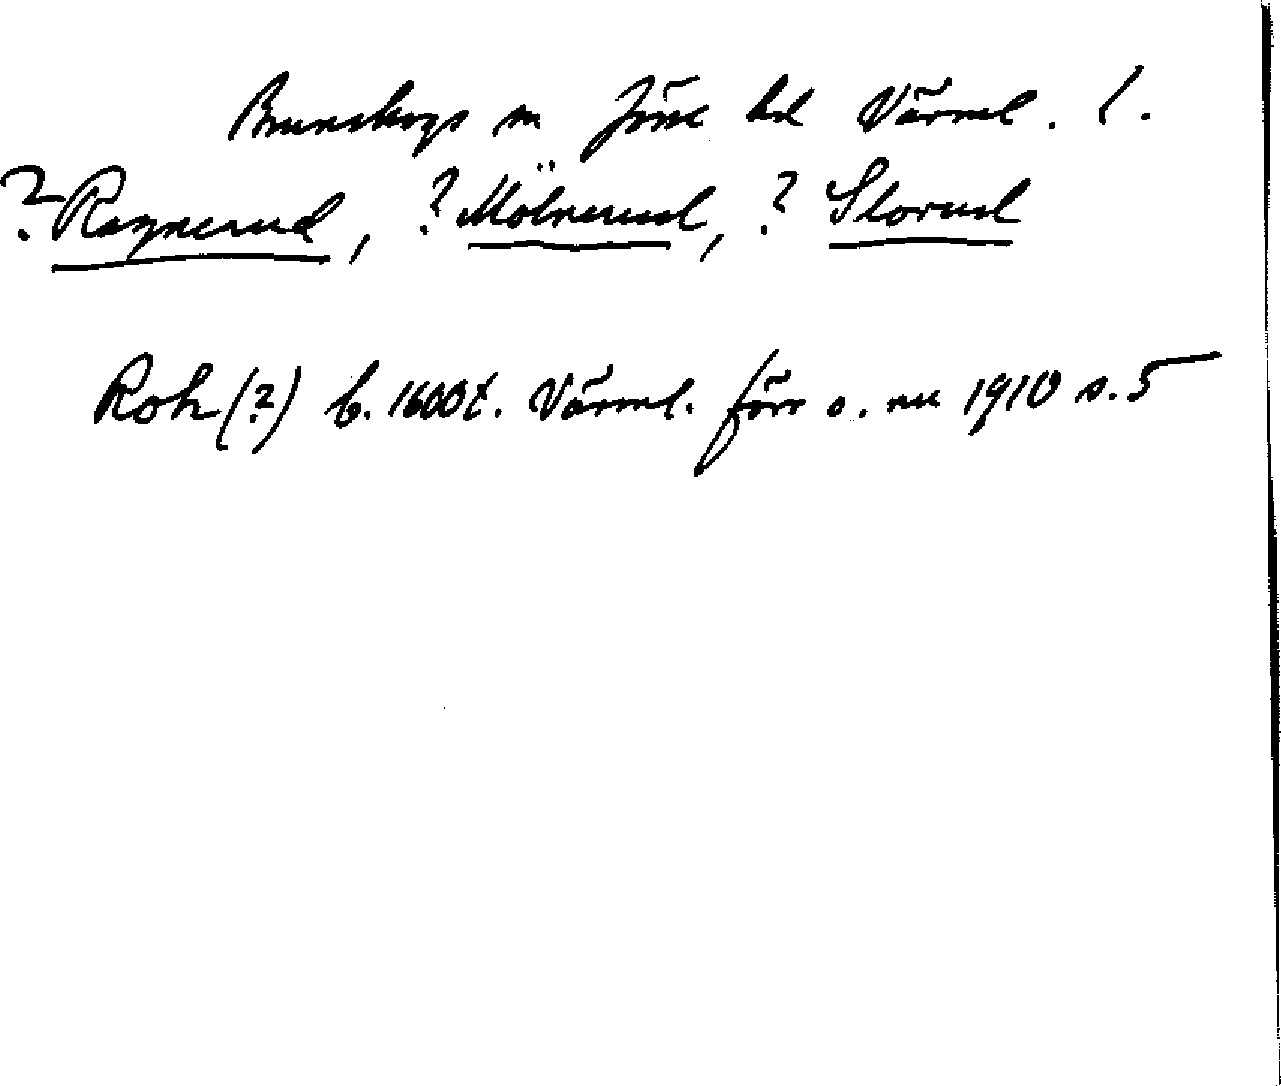 Brunskogs sn Jösse hd Värml. l.
? Ragnerud, ? Mölnerud, ? Slorud
Roh (?) b. 1600t. Värml. förr o. nu 1910 s. 5